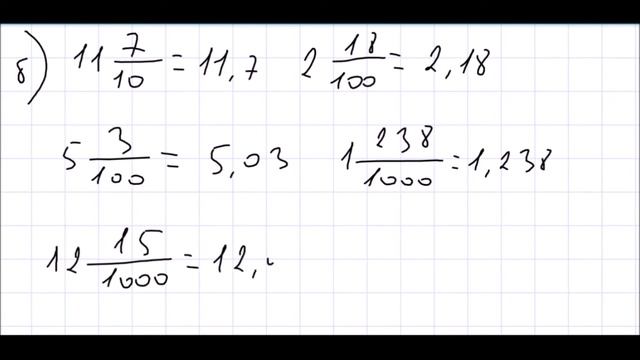 б) 11 7/10 = 11,7 2 18/100 = 2,18
5 3/100 = 5,03 1 238/1000 = 1,238
12 15/1000 = 12,